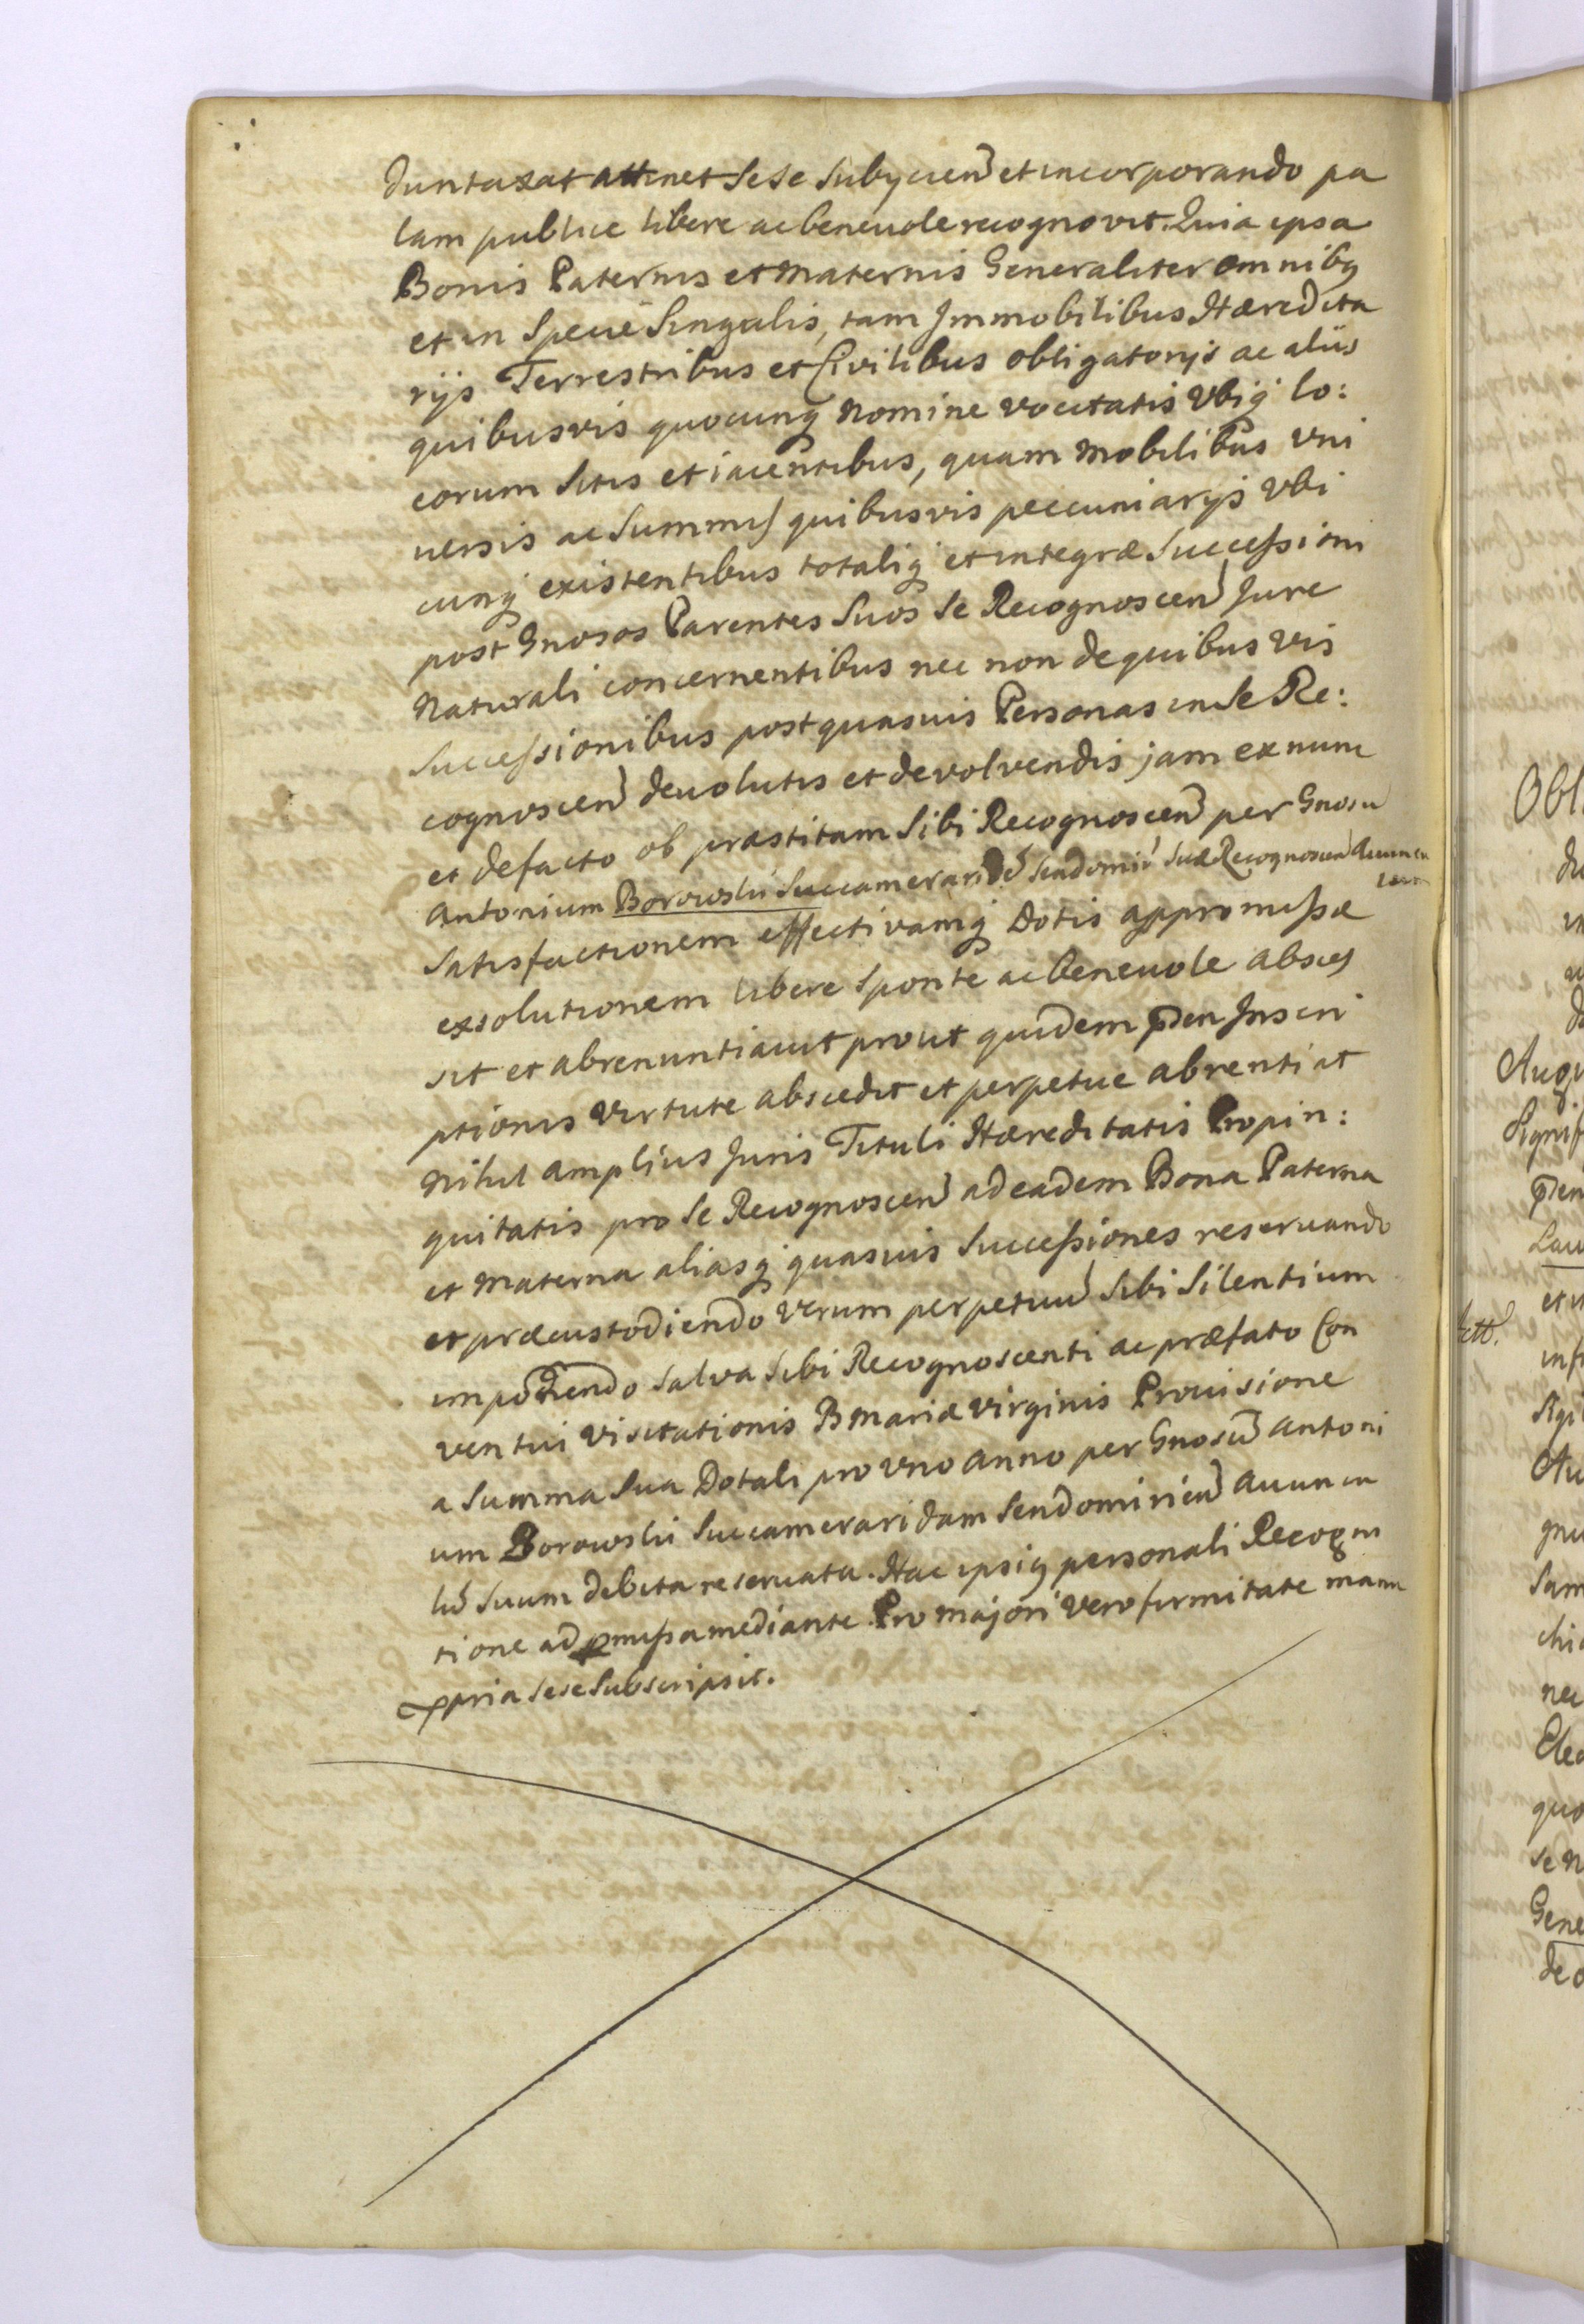 duntaxat attinet sese subÿcien̄ et incorporando pa
lam publice libere ac beneuole recognovit. Quia ipsa
Bonis Paternis et Maternis Generaliter omnibq
et in Specie Singulis, tam Jmmobilibus Hæredita
rÿs Terrestribus et Civilibus obligatorÿs ac aliis
quibusvis quocunq nomine vocitatis Vbiq lo:
corum sitis et iacentibus, quam Mobilibus Vni
uersis ac Summis quibusvis peccuniarÿs Vbi
cunq existentibus totaliq et integræ Successioni
post Gnosos Parentes Suos Se Recognoscen̄ Jure
Naturali concernentibus nec non de quibus vis
Successionibus post quasuis Personas in se Re:
cognoscen̄ deuolutis et devolvendis jam ex nunc
et de facto ob præstitam Sibi Recognoscen̄ per Gnosū
Antonium Borowski Succamerarid Sendomir̄ Suæ Recognoscen̄ Auuncu
satisfactionem effectivamq Dotis appromissæ
exsolutionem libere sponte ac beneuole absces
sit et abrenuntiauit prout quidem p̄den Jnscri
ptionis virtute abscedit et perpetue abrenti at
Nihil amplius Juris Tituli Hæreditatis Propin:
quitatis pro Se Recognoscen̄ ad eadem Bona Paterna
et Materna aliasq quasuis Successiones reseruando
et præcustodiendo Verum perpetuū sibi Silentium
imponendo salva sibi Recognoscenti ac præfato Con
ventui Visitationis B Mariæ Virginis Prouisione
a Summa sua Dotali pro vno anno per Gnosū Antoni
um Borowski Succameraridam Sendomirien̄ Auuncu
lū suum debita reseruata. Hac ipsiq personali Recogni
tione ad pmissa mediante. Pro majori vero firmitate manu
ppria sese Subscripsit.
Obl
Augu
Signif
p̄den
Gene
de